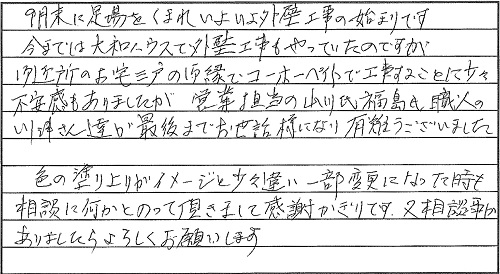 9月末に足場をくまれいよいよ外壁工事の始まりです
今までは大和ハウスで外壁工事もやっていたのですが
御近所のお宅三戸の御縁でコーホーベイトで工事することに少々
不安感もありましたが 営業担当の山川氏 福島氏 職人の
いのまさん達が最後までお世話様になり有難うございました
色の塗り上りがイメージと少々違い一部変更になった時も
相談に何かとのって頂きまして感謝かぎりです。又相談事が
ありましたらよろしくお願いします